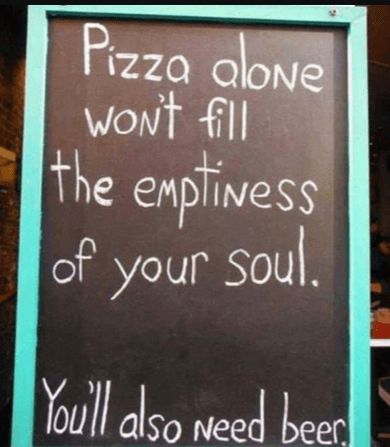 Pizza alone
won't fill
the emptiness
of your soul.
You'll also need beer